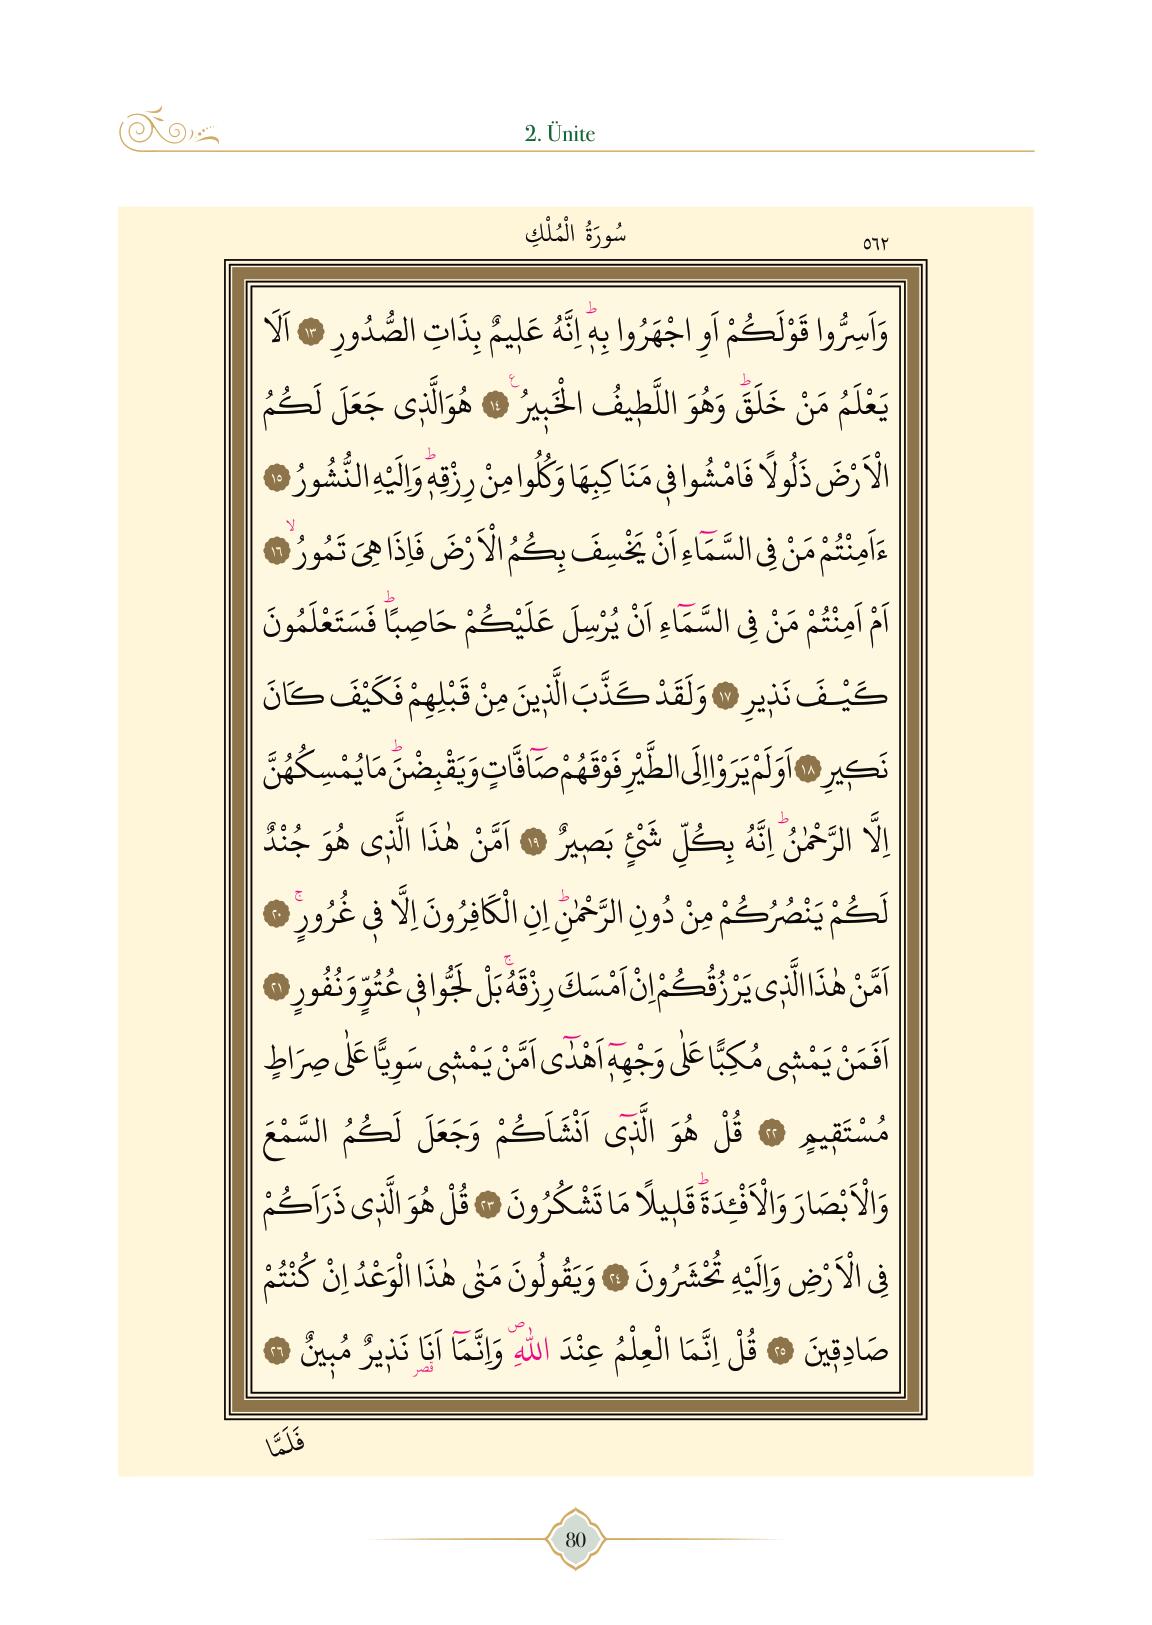 2. Ünite
سُورَةُ الْمُلْكِ ٥٦٢
وَاَسِرُّوا قَوْلَكُمْ اَوِ اجْهَرُوا بِه۪ۜ اِنَّهُ عَل۪يمٌ بِذَاتِ الصُّدُورِ ﴿١٣﴾ اَلَا
يَعْلَمُ مَنْ خَلَقَۜ وَهُوَ اللَّط۪يفُ الْخَب۪يرُ۟ ﴿١٤﴾ هُوَ الَّذ۪ى جَعَلَ لَكُمُ
الْاَرْضَ ذَلُولًا فَامْشُوا ف۪ى مَنَاكِبِهَا وَكُلُوا مِنْ رِزْقِه۪ۜ وَاِلَيْهِ النُّشُورُ ﴿١٥﴾
ءَاَمِنْتُمْ مَنْ فِى السَّمَٓاءِ اَنْ يَخْسِفَ بِكُمُ الْاَرْضَ فَاِذَا هِىَ تَمُورُۙ ﴿١٦﴾
اَمْ اَمِنْتُمْ مَنْ فِى السَّمَٓاءِ اَنْ يُرْسِلَ عَلَيْكُمْ حَاصِبًاۜ فَسَتَعْلَمُونَ
كَيْفَ نَذ۪يرِ ﴿١٧﴾ وَلَقَدْ كَذَّبَ الَّذ۪ينَ مِنْ قَبْلِهِمْ فَكَيْفَ كَانَ
نَك۪يرِ ﴿١٨﴾ اَوَلَمْ يَرَوْا اِلَى الطَّيْرِ فَوْقَهُمْ صَٓافَّاتٍ وَيَقْبِضْنَۜ مَا يُمْسِكُهُنَّ
اِلَّا الرَّحْمٰنُۜ اِنَّهُ بِكُلِّ شَىْءٍ بَص۪يرٌ ﴿١٩﴾ اَمَّنْ هٰذَا الَّذ۪ى هُوَ جُنْدٌ
لَكُمْ يَنْصُرُكُمْ مِنْ دُونِ الرَّحْمٰنِۜ اِنِ الْكَافِرُونَ اِلَّا ف۪ى غُرُورٍۚ ﴿٢٠﴾
اَمَّنْ هٰذَا الَّذ۪ى يَرْزُقُكُمْ اِنْ اَمْسَكَ رِزْقَهُۚ بَلْ لَجُّوا ف۪ى عُتُوٍّ وَنُفُورٍ ﴿٢١﴾
اَفَمَنْ يَمْش۪ى مُكِبًّا عَلٰى وَجْهِه۪ٓ اَهْدٰٓى اَمَّنْ يَمْش۪ى سَوِيًّا عَلٰى صِرَاطٍ
مُسْتَق۪يمٍ ﴿٢٢﴾ قُلْ هُوَ الَّذ۪ٓى اَنْشَاَكُمْ وَجَعَلَ لَكُمُ السَّمْعَ
وَالْاَبْصَارَ وَالْاَفْـِٔدَةَۜ قَل۪يلًا مَا تَشْكُرُونَ ﴿٢٣﴾ قُلْ هُوَ الَّذ۪ى ذَرَاَكُمْ
فِى الْاَرْضِ وَاِلَيْهِ تُحْشَرُونَ ﴿٢٤﴾ وَيَقُولُونَ مَتٰى هٰذَا الْوَعْدُ اِنْ كُنْتُمْ
صَادِق۪ينَ ﴿٢٥﴾ قُلْ اِنَّمَا الْعِلْمُ عِنْدَ اللّٰهِۖ وَاِنَّمَٓا اَنَا۬ نَذ۪يرٌ مُب۪ينٌ ﴿٢٦﴾
قصر
فَلَمَّا
80